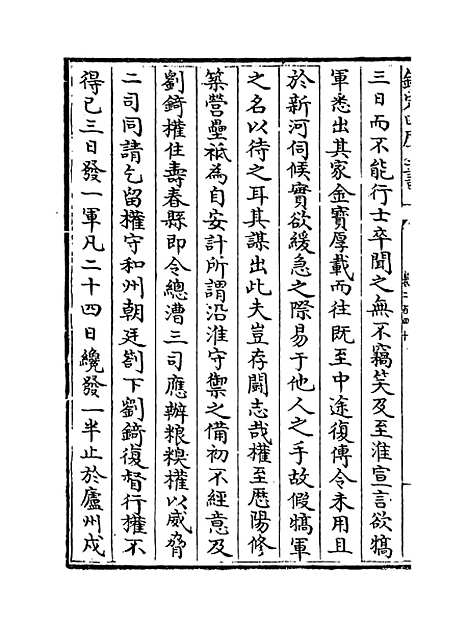 欽定四庫全書
卷二百四十
三日而不能行士卒聞之無不竊笑及至淮宣言欲犒
軍悉出其家金寶厚載而往既至中途復傳令未用且
於新河伺候實欲緩急之際易于他人之手故假犒軍
之名以待之耳其謀出此夫豈存鬭志哉權至歴陽修
築營壘祗為自安計所謂沿淮守禦之備初不經意及
劉錡權住壽春縣即令總漕三司應辦粮糗權以威脅
二司同請乞留權守和州朝廷劄下劉錡復督行權不
得已三日發一軍凡二十四日纔發一半止於廬州戍